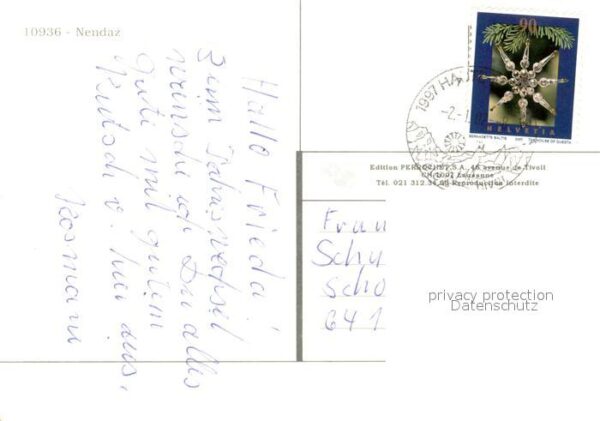 10936 - Nendaz
Hallo Frieda!
Zum Jahreswechsel
wünsche ich Dir alles
Gute mit gutem
Rutsch v. hier aus,
Rosmarie
90
HELVETIA
1997 HA
-2.-1.
Edition PERROCHET S.A., 46 avenue de Tivoli
CH 1007 Lausanne
Tél. 021 312.31.55 Reproduction interdite
Frau
Schu
Scho
641
privacy protection
Datenschutz